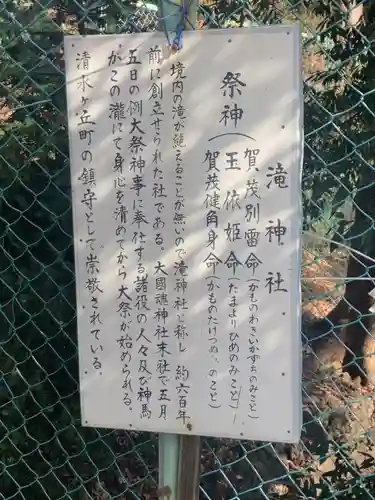 滝神社
賀茂別雷命(かものわきいかずちのみこと)
祭神(玉依姫命(たまよりひめのみこと)
賀茂健角身命(かものたけつぬみのこと)
境内の滝が絶えることが無いので滝神社と称し 約六百年
前に創立せられた社である。大國魂神社末社で五月
五日の例大祭神事に奉仕する諸役の人々及び神馬
がこの瀧にて身心を清めてから大祭が始められる。
清水ヶ丘町の鎮守として崇敬されている。